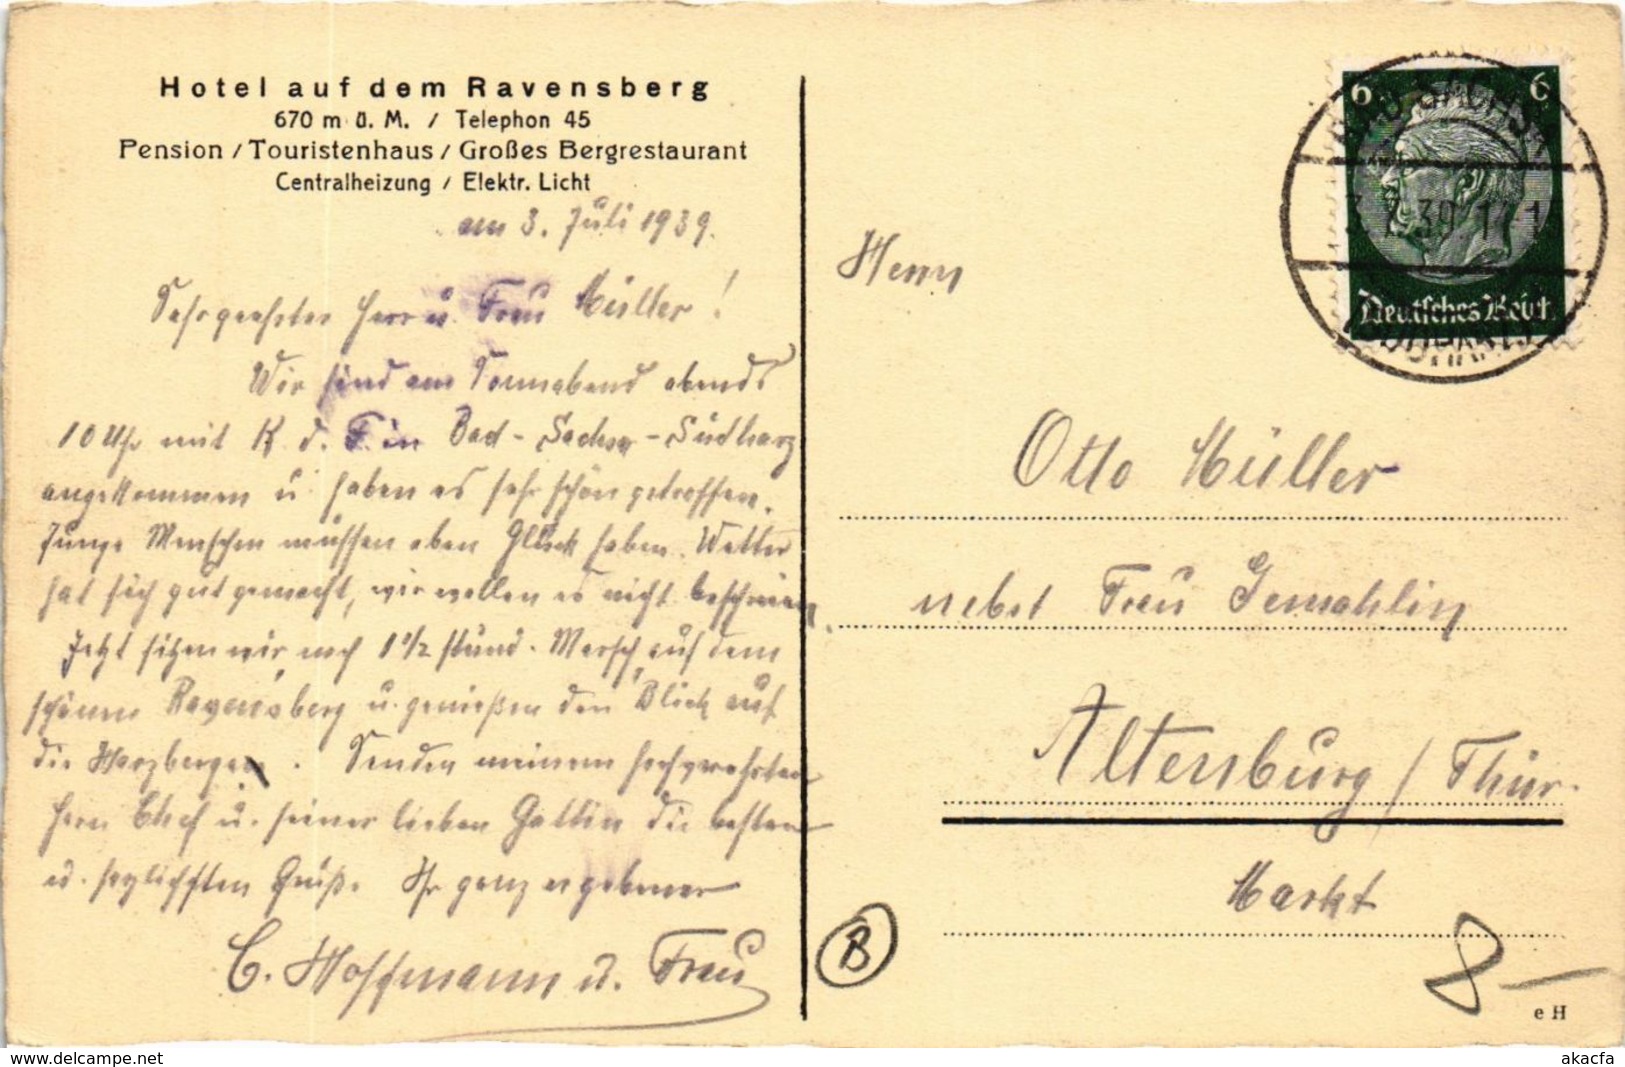 Hotel auf dem Ravensberg
670 m ü. M. / Telephon 45
Pension / Touristenhaus / Großes Bergrestaurant
Centralheizung / Elektr. Licht
am 3. Juli 1939.
Sehrgeehrter Herr u. Frau Müller!
Wir sind am Sonnabend abends
10 Uhr mit K. d. F. in Bad-Sachsa-Südharz
angekommen u. haben es sehr schön getroffen.
Junge Menschen müssen eben Glück haben. Wetter
hat sich gut gemacht, wir wollen es nicht beschreien.
Jetzt sitzen wir nach 1 1/2 stünd. Marsch auf dem
schönen Ravensberg u. genießen den Blick auf
die Harzberge. Senden meinem hochgeehrten
Herrn Chef u. seiner lieben Gattin die besten
u. herzlichsten Grüße. Ihr ganz ergebener
C. Hoffmann u. Frau
6 6
BAD SACHSA
3.7.39.11-1
Deutsches Reich
(SÜDHARZ)
Herrn
Otto Müller
nebst Frau Gemahlin
Altenburg / Thür.
Markt
B
8-
e H
akacfa
www.delcampe.net